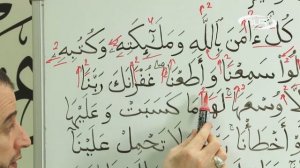 كُلٌّ ءَامَنَ بِاللَّهِ وَمَلَٰٓئِكَتِهِ وَكُتُبِهِ
لُوا سَمِعْنَا وَأَطَعْنَا غُفْرَانَكَ رَبَّنَا
وُسْعَهَا لَهَا مَا كَسَبَتْ وَعَلَيْهَا
وْ أَخْطَأْنَا لَا تَحْمِلْ عَلَيْنَا